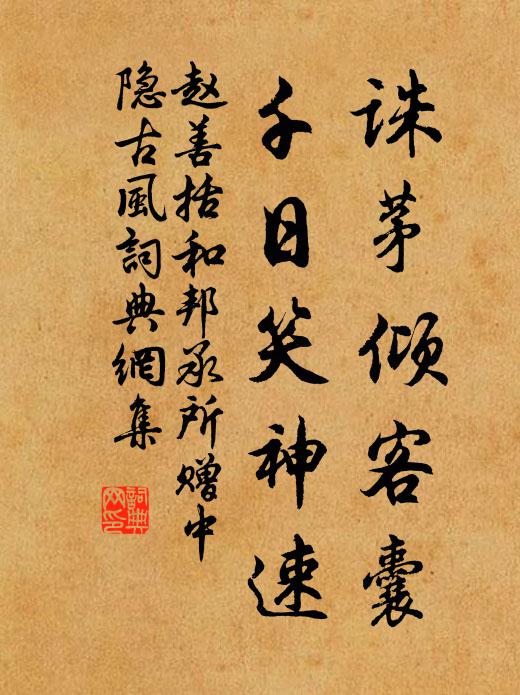 誅茅傾客囊
千日笑神速
赵善括和邦承所赠中
隐古風詞典網集
詞典
网印